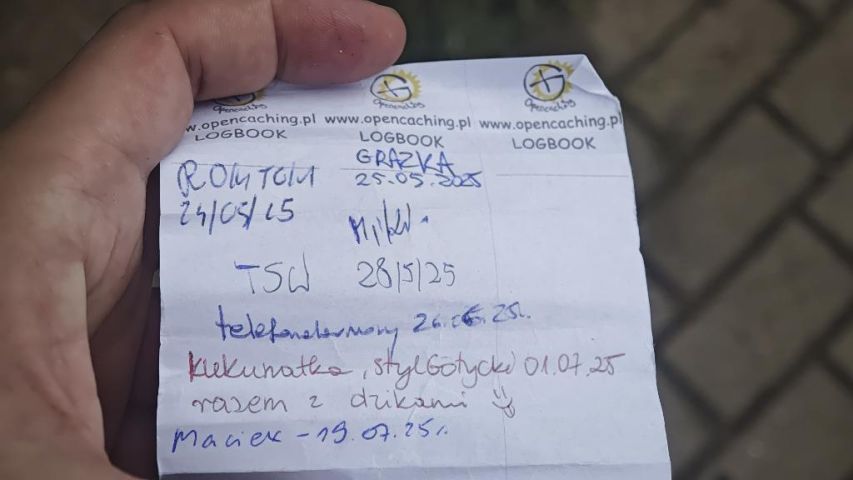 Opencaching Opencaching Opencaching
w.opencaching.pl www.opencaching.pl www.opencaching.pl
LOGBOOK LOGBOOK LOGBOOK
ROMTOM GRAZKA
24/05/25 25.05.2025
TSW 28/5/25
25r.
kiekunatka, stylGotycki 01.07.25
razem z dzikami
Maciek - 19.07.25r.